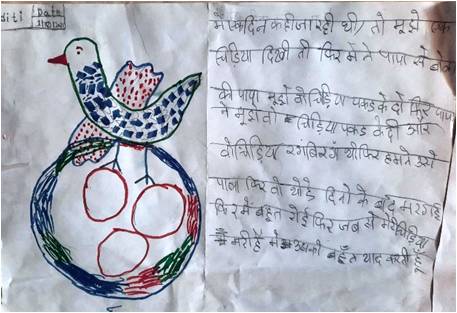 diti
Date
में एक दिन कही जा रही थी तो मूझे एक
चिड़िया दिखी तो फिर मैं ने पापा से बोला
की पापा मूझे वो चिड़िया पकड के दो फिर पापा
ने मूझे वो चिड़िया पकड के दी और
वो चिड़िया रंगबिरंगी थी फिर हमने उसे
पाला फिर वो थोडे दिनो के बाद मर गई
फिर में बहुत रोई फिर जब से मेरी चिड़िया
मरी है में उसको बहुँत याद करती हूँ